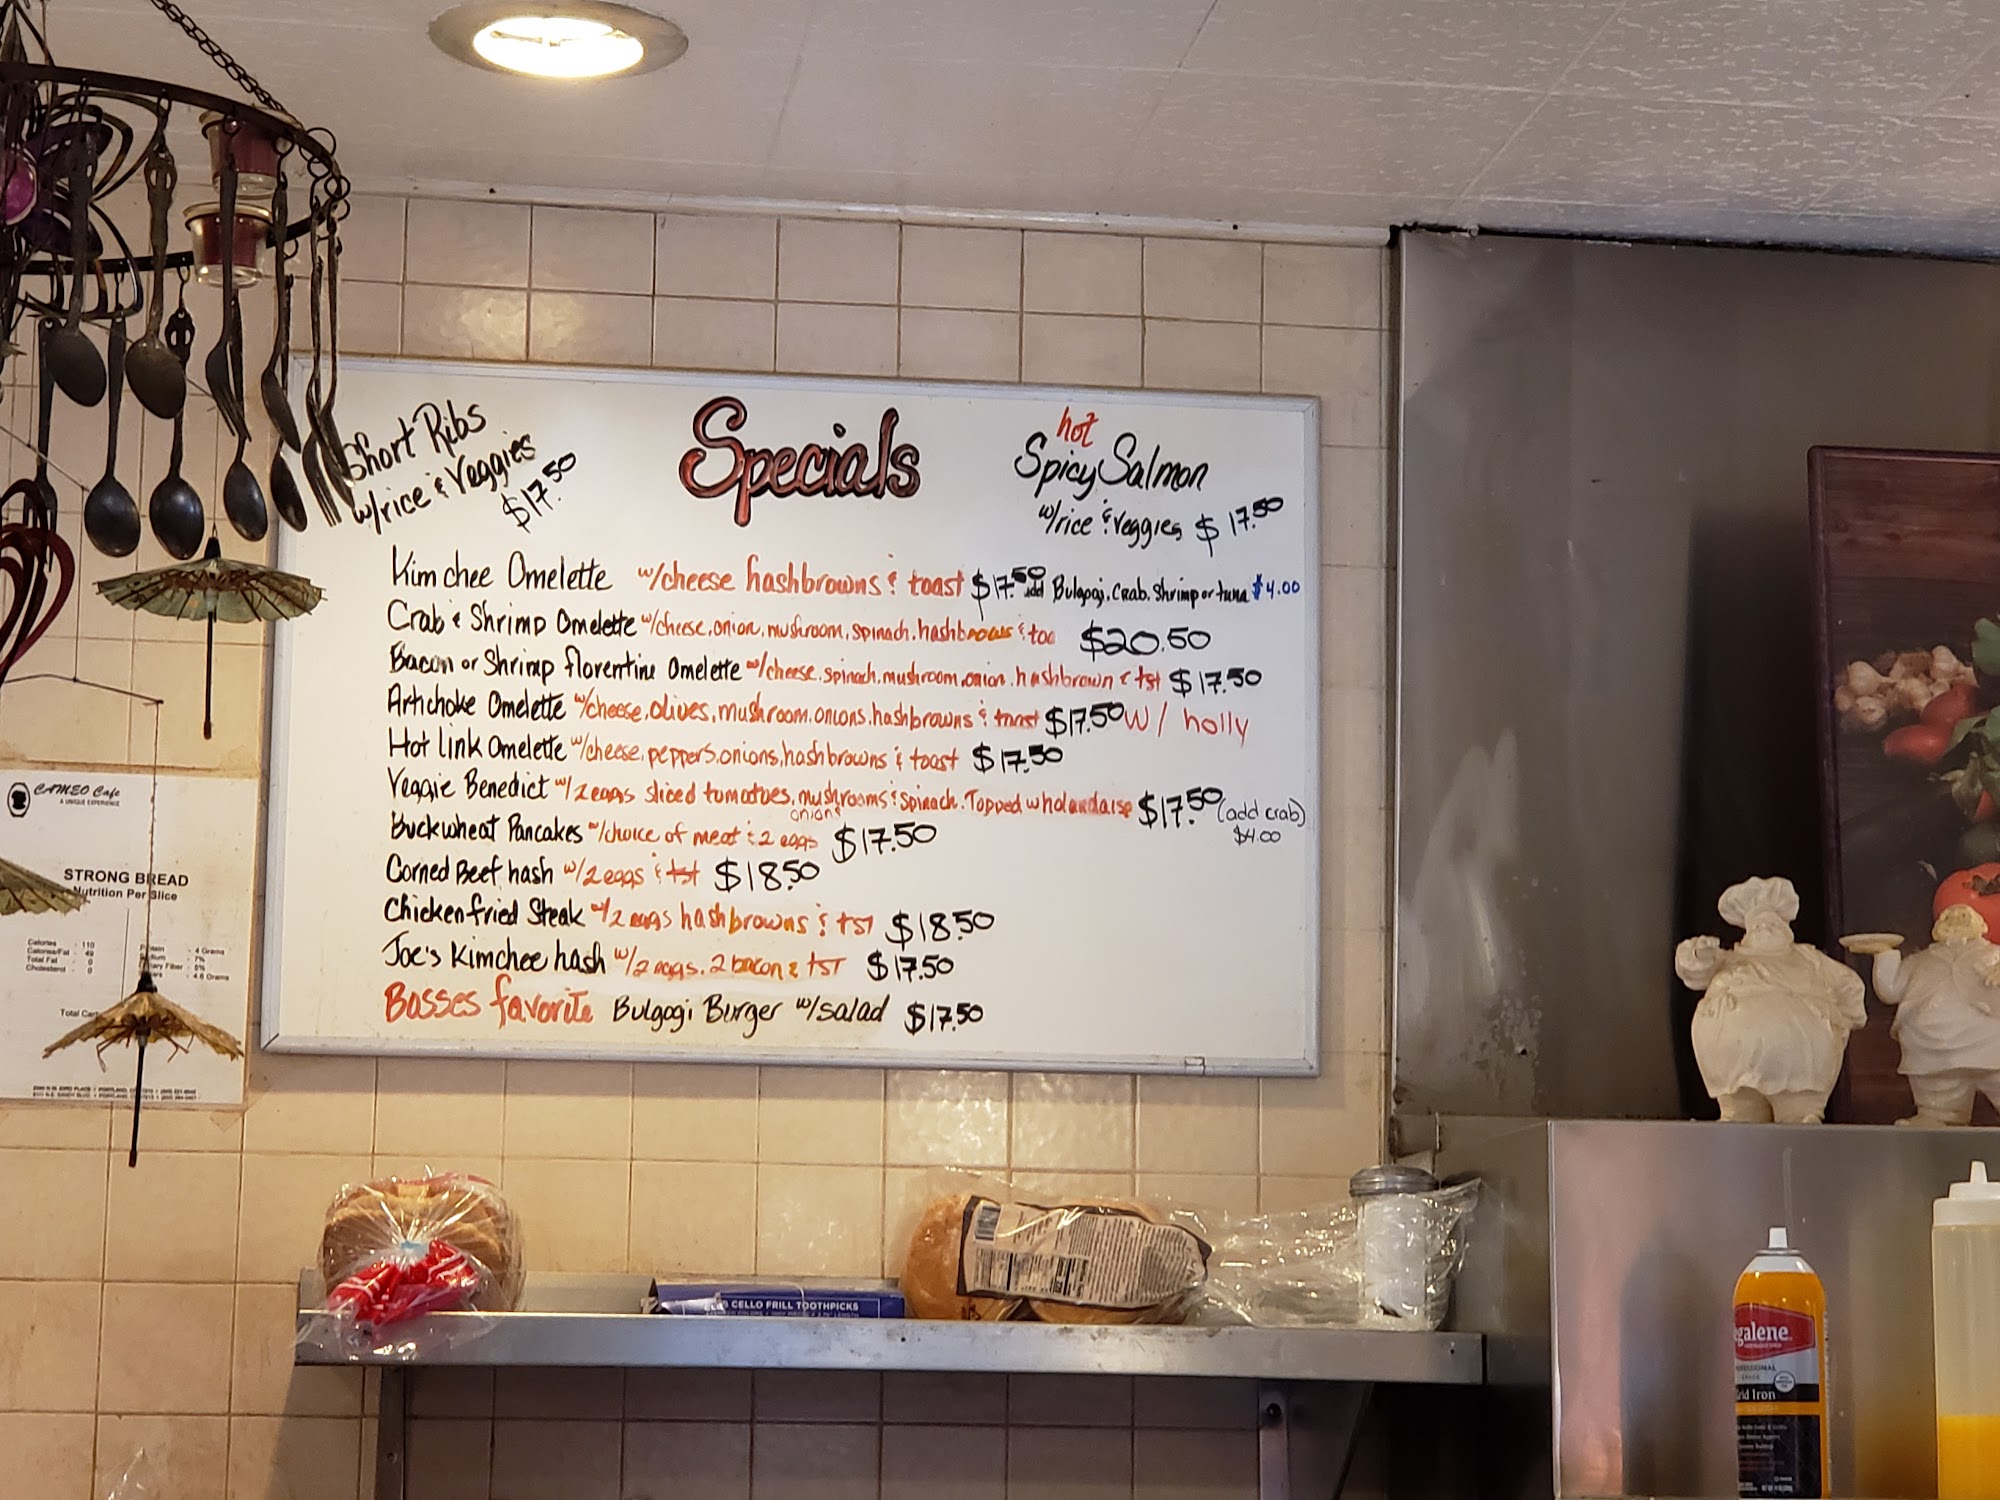 Specials
Short Ribs
w/rice & Veggies
$17.50
hot
Spicy Salmon
w/rice & Veggies $17.50
Kimchee Omelette w/cheese hashbrowns & toast $17.50 add Bulgogi, Crab, Shrimp or tuna $4.00
Crab & Shrimp Omelette w/cheese, onion, mushroom, spinach, hashbrowns & toa $20.50
Bacon or Shrimp florentine Omelette w/cheese, spinach, mushroom, onion, hashbrown & tst $17.50
Artichoke Omelette w/cheese, olives, mushroom, onions, hashbrowns & toast $17.50 w/ holly
Hot link Omelette w/cheese, peppers, onions, hashbrowns & toast $17.50
Veggie Benedict w/2 eggs sliced tomatoes, mushrooms & spinach. Topped w holandaise $17.50 (add crab)
onions
$4.00
Buckwheat Pancakes w/choice of meat & 2 eggs $17.50
Corned Beef hash w/2 eggs & tst $18.50
Chicken fried Steak w/2 eggs hashbrowns & tst $18.50
Joe's Kimchee hash w/2 eggs, 2 bacon & tst $17.50
Bosses favorite Bulgogi Burger w/salad $17.50
CAMEO Cafe
A UNIQUE EXPERIENCE
STRONG BREAD
Nutrition Per Slice
Calories - 110
Calories/Fat - 49
Total Fat - 0
Cholesterol - 0
- 4 Grams
- 7%
- 5%
- 4.6 Grams
Total
CELLO FRILL TOOTHPICKS
galene
Iron